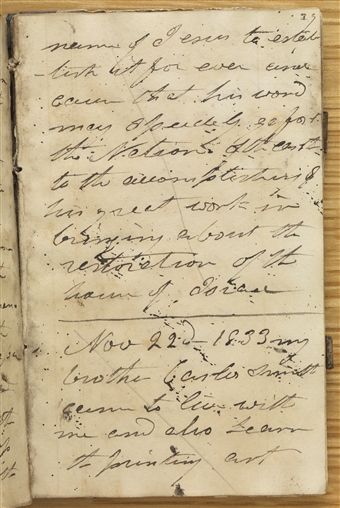 39
name of Jesus to estab
-lish it for ever and
cause that his word
may speedily go forth
the Nations of the earth
to the accomplishing of
his great work in
bringing about the
restoration of the
house of Israel
Nov 22d 1833 my
brother Carlos Smith
came to live with
me and also Learn
the printing art